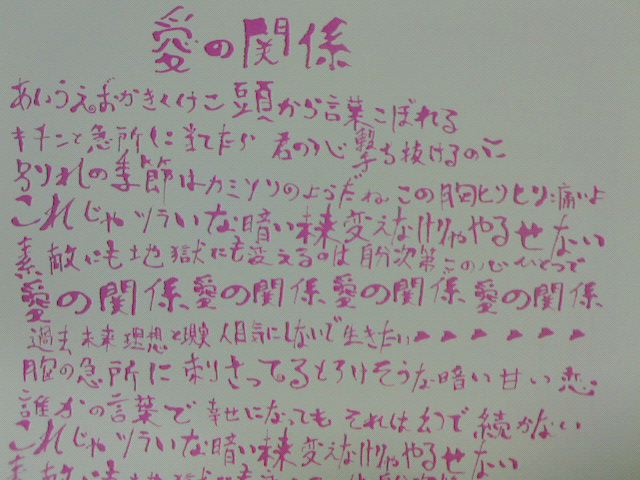 愛の関係
あいうえおかきくけこ 頭から言葉こぼれる
キチンと急所に当てたら 君の心 撃ち抜けるのに
別れの季節はカミソリのようだね この胸ヒリヒリ痛いよ
これじゃツライな暗い未来 変えなけりゃやるせない
素敵にも地獄にも変えるのは自分次第 この心ひとつで
愛の関係 愛の関係 愛の関係 愛の関係
過去 未来 理想と現実 人目気にしないで生きたい
胸の急所に刺さってるとろけそうな暗い甘い恋
誰かの言葉で幸せになっても それは幻で続かない
これじゃツライな暗い未来 変えなけりゃやるせない